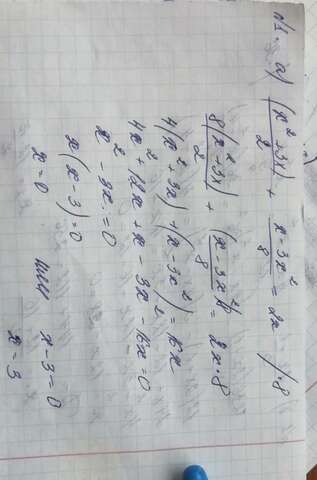 №1. а) (x²+3x)/2 + (x-3x²)/8 = 2x /·8
8(x²+3x)/2 + (x-3x²)8/8 = 2x·8
4(x²+3x)+(x-3x²)=16x
4x²+12x+x-3x²-16x=0
x²-3x=0
x(x-3)=0
x=0 или x-3=0
x=3